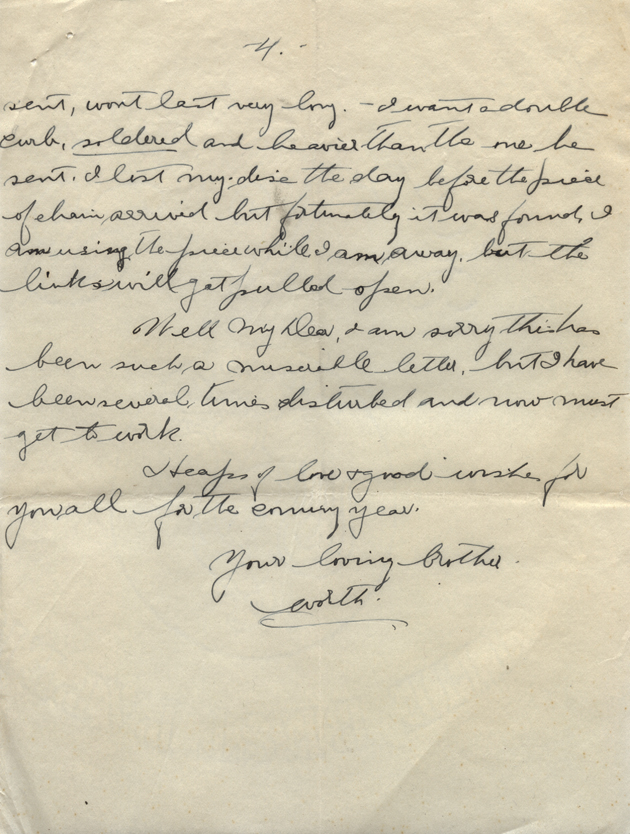 4.-
sent, wont last very long. - I want a double
curb, soldered and heavier than the one he
sent. I lost my disc the day before the piece
of chain arrived but fortunately it was found, I
am using the piece while I am away, but the
links will get pulled open.
Well My Dear, I am sorry this has
been such a miserable letter, but I have
been several times disturbed and now must
get to work.
Heaps of love & good wishes for
you all for the coming year.
Your loving brother.
Worth.